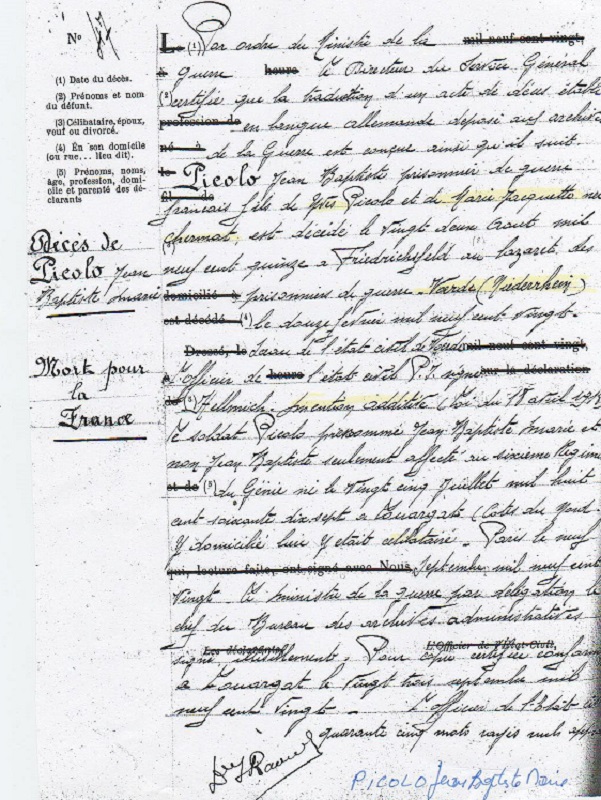 N° 17
(1) Date du décès.
(2) Prénoms et nom du défunt.
(3) Célibataire, époux, veuf ou divorcé.
(4) En son domicile (ou rue... lieu dit).
(5) Prénoms, noms, âge, profession, domicile et parenté des déclarants
Décès de
Picolo Jean
Baptiste Marie
Mort pour
la
France
Le (1) Par ordre du Ministre de la mil neuf cent vingt,
à Guerre heure le Directeur du Service Général
(2) certifie que la traduction d'un acte de décès établi
profession de en langue allemande déposé aux archives
né à de la Guerre est conçue ainsi qu'il suit.
le Picolo Jean Baptiste prisonnier de guerre
fil de français fils de Yves Picolo et de Marie Jacquette née
(3) est décédé le vingt Août mil
neuf cent quinze à Friedrichsfeld au lazaret des
domicilié à prisonniers de guerre. (Niederrhein)
est décédé (4) le douze février mil neuf cent vingt.
Dressé, le Sceau de l'état civil de mil neuf cent vingt,
à L'officier de heure l'état civil P.I. signé sur la déclaration
de (5) Hellmich. mention additive (Loi du 18 avril 1918)
le soldat Picolo prénommé Jean Baptiste Marie et
non Jean Baptiste seulement affecté au sixième Régime
et de (5) du Génie né le Vingt cinq Juillet mil huit
cent soixante dix sept à Louargat (Côtes du Nord
Y domicilié lui y était célibataire. Paris le neuf
qui, lecture faite, ont signé avec Nous, Septembre mil neuf cent
Vingt Le ministre de la guerre par délégation le
chef du Bureau des archives administratives
Les déclarants, L'Officier de l'Etat-Civil,
signé illisiblement. Pour copie certifiée conforme
à Louargat le vingt trois septembre mil
neuf cent vingt. L'officier de l'Etat Ci
quarante cinq mots rayés nuls
PICOLO Jean Baptiste Marie